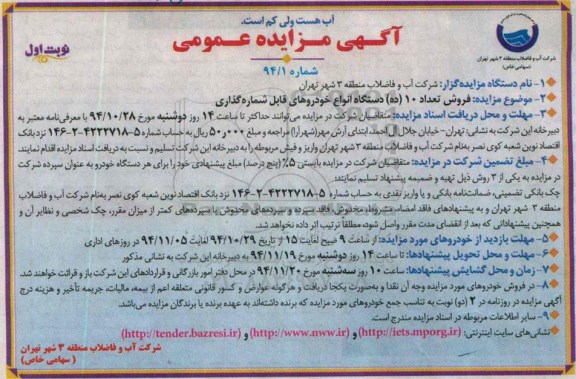 آب هست ولی کم است.
آگهی مزایده عمومی
نوبت اول
شماره ۹۴/۱
شرکت آب و فاضلاب منطقه ۳ شهر تهران
(سهامی خاص)
۱- نام دستگاه مزایده‌گزار: شرکت آب و فاضلاب منطقه ۳ شهر تهران
۲- موضوع مزایده: فروش تعداد ۱۰ (ده) دستگاه انواع خودروهای قابل شماره‌گذاری
۳- مهلت و محل دریافت اسناد مزایده: متقاضیان شرکت در مزایده می‌توانند حداکثر تا ساعت ۱۴ روز دوشنبه مورخ ۹۴/۱۰/۲۸ با معرفی‌نامه معتبر به
دبیرخانه این شرکت به نشانی: تهران- خیابان جلال آل‌احمد، ابتدای آرش مهر(شهرآرا) مراجعه و مبلغ ۵۰٫۰۰۰ ریال به حساب شماره ۵-۴۲۲۲۷۱۸-۲-۱۴۶ نزد بانک
اقتصاد نوین شعبه کوی نصر بنام شرکت آب و فاضلاب منطقه ۳ شهر تهران واریز و فیش مربوطه را به دبیرخانه این شرکت تسلیم و نسبت به دریافت اسناد مزایده اقدام نمایند.
۴- مبلغ تضمین شرکت در مزایده: متقاضیان شرکت در مزایده بایستی ۵٪ (پنج درصد) مبلغ پیشنهادی خود را برای هر دستگاه خودرو به عنوان سپرده شرکت
در مزایده به یکی از ۳ روش ذیل تهیه و ضمیمه پیشنهاد تسلیم نمایند:
چک بانکی تضمینی، ضمانت‌نامه بانکی و یا واریز نقدی به حساب شماره ۵-۴۲۲۲۷۱۸-۲-۱۴۶ نزد بانک اقتصاد نوین شعبه کوی نصر بنام شرکت آب و فاضلاب
منطقه ۳ شهر تهران و به پیشنهادهای فاقد امضاء، مشروط، مخدوش، فاقد سپرده و سپرده‌های مخدوش یا سپرده‌های کمتر از میزان مقرر، چک شخصی و نظایر آن و
همچنین پیشنهاداتی که بعد از انقضای مدت مقرر واصل شود، مطلقاً ترتیب اثر داده نخواهد شد.
۵- مهلت بازدید از خودروهای مورد مزایده: از ساعت ۹ صبح لغایت ۱۵ از تاریخ ۹۴/۱۰/۲۹ لغایت ۹۴/۱۱/۰۵ در روزهای اداری
۶- مهلت و محل تحویل پیشنهادها: تا ساعت ۱۴ روز دوشنبه مورخ ۹۴/۱۱/۱۹ به دبیرخانه این شرکت به نشانی مذکور
۷- زمان و محل گشایش پیشنهادها: ساعت ۱۰ روز سه‌شنبه مورخ ۹۴/۱۱/۲۰ در محل دفتر امور بازرگانی و قراردادهای این شرکت باز و قرائت خواهند شد.
۸- در فروش خودروهای مورد مزایده وجه آن نقدا و به‌صورت یکجا دریافت و هرگونه عوارض و کسور قانونی متعلقه اعم از بیمه، مالیات، جریمه تأخیر و هزینه درج
آگهی مزایده در روزنامه در ۲ (دو) نوبت به تناسب جمع خودروهای مورد مزایده که برنده داشته‌اند به عهده برنده یا برندگان مزایده می‌باشد.
۹- سایر اطلاعات مربوطه در اسناد مزایده مندرج است.
نشانی‌های سایت اینترنتی: (http://iets.mporg.ir) و (http://www.nww.ir) و (http://tender.bazresi.ir)
شرکت آب و فاضلاب منطقه ۳ شهر تهران
(سهامی خاص)